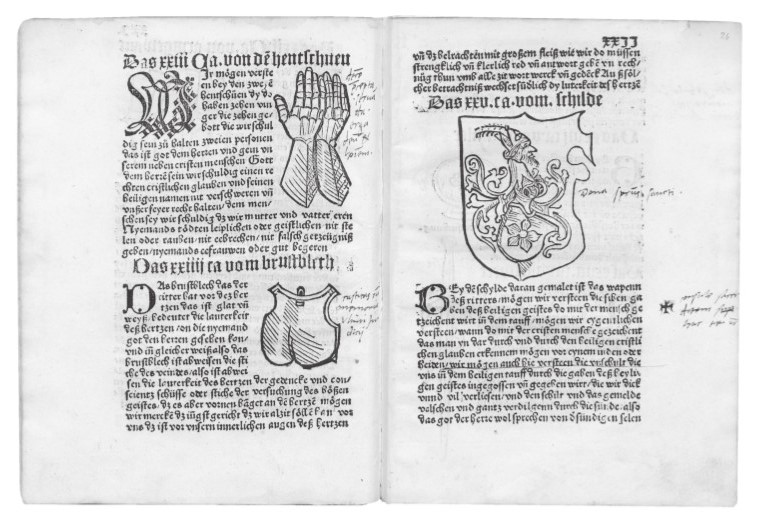 Das xxiii Ca. von dē hentschueu
Ir mögen verste
en bey den zweē
hentschuēn dy do
haben zehen vin
ger die zehen ge/
bott die wir schul
dig sein zu halten zweien personen
das ist got dem herren und gem vn
serem neben cristen menschen Gott
dem herrē sein wir schuldig einen re
chten cristlichen glauben und seinen
heiligen namen nit verschweren vñ
vnser feyer recht halten/dem men/
schen sey wir schuldig dz wir mutter vnd vatter eren
Nyemands tödten leiplichen oder geistlichen nit ste
len oder rauben/nit eebrechen/nit falsch getzeügniß
geben/nyemands eefrauwen oder gut begeren
Das xxiiij ca vom brustblech
DAs brustblech das der
ritter hat vor des her
tzen das ist glat vñ
weyß/bedeutet die lauterkeit
deß hertzen/on die nyemand
got den herren gesehen kon/
vnd iñ gleicher weiß also das
brustblech ist abweisen die sti
che des veindes/also ist abwei
sen die lauterkeit des hertzen der gedencke vnd con/
scientz schüsse oder stiche der versuchung des bößen
geistes/dz es aber vornen hanget an dē hertzē mögen
wir mercken dz iūgst gericht dz wir alzit söllen han vor
vns dz ist vor vnsern innerlichen augen deß hertzen
XXII
vñ dz betrachten mit großem fleiß wie wir do müssen
strengklich vñ klerlich red vñ antwort geben vn rech/
nūg thun vmb alle zit wort werck vñ gedēck
cher betrachtniß wechset südlich dy luterkeit des hertzē
Das xxv.ca.vom.schilde
BEy dē schylde daran gemalet ist das wapenn
deß ritters/mögen wir versteen die siben ga
ben deß heiligen geistes do mit der mensch ge
tzeichent wirt in dem tauff/mögen wir eygentlichen
versteen/wann do mit der cristen mensche gezeichent
das man yn dar durch vnd durch den heiligen cristli
chen glauben erkennem mögen vor eynem iuden oder
heiden/wir mögen auch hie versteen die vnschult die
vns iñ dem heiligen tauff durch die gaben deß heyli/
gen geistes ingegossen vñ gegeben wirt/die wir dick
vnnd vil verliesen/vnd den schilt vnd das gemelde
valschen vnd gantz verdilgenn durch die sunde.also
das got der herre wol sprechen von d sundigen selen
Dona spiritus sancti.